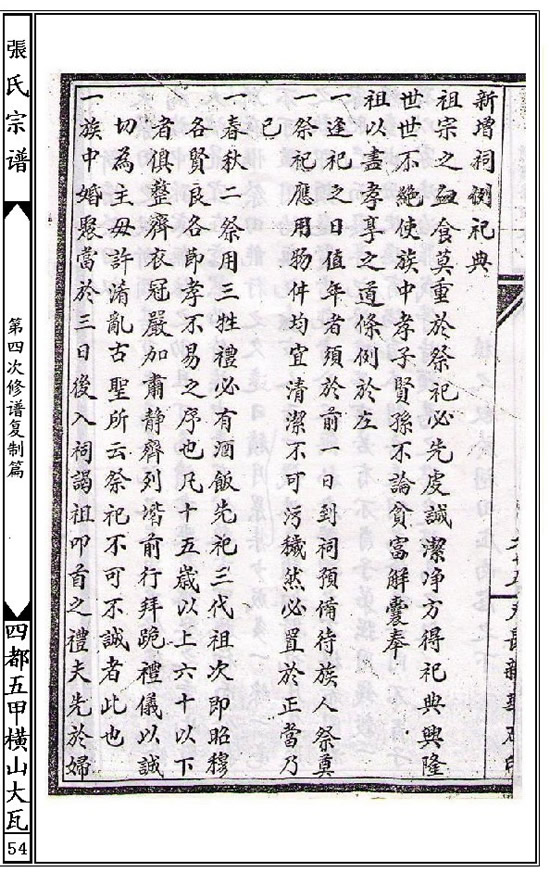 新增祠例祀典
祖宗之血食莫重於祭祀必先虔誠潔净方得祀典興隆
世世不絶使族中孝子賢孫不論貧富解囊奉
祖以盡孝享之道條例於左
一逢祀之日值年者須於前一日到祠預備待族人祭奠
一祭祀應用物件均宜清潔不可污穢然必置於正當乃
已
一春秋二祭用三牲禮必有酒飯先祀三代祖次即昭穆
各賢良各節孝不易之序也凡十五歲以上六十以下
者慎整齊衣冠嚴加肅静齊列堦前行拜跪禮儀以誠
切為主毋許淆亂古聖所云祭祀不可不誠者此也
一族中婚娶當於三日後入祠謁祖叩首之禮夫先於婦
張氏宗谱
第四次修谱复制篇
四都五甲横山大瓦
54